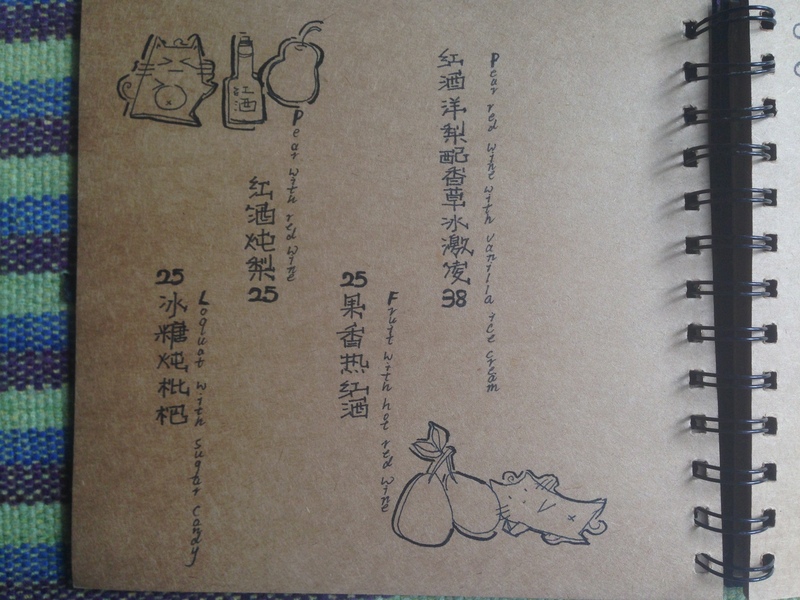 红酒
红酒洋梨配香草冰激凌 38
Pear red wine with vanilla ice cream
25 果香热红酒
Fruit with hot red wine
红酒炖梨 25
Pear with red wine
25 冰糖炖枇杷
Loquat with sugar candy